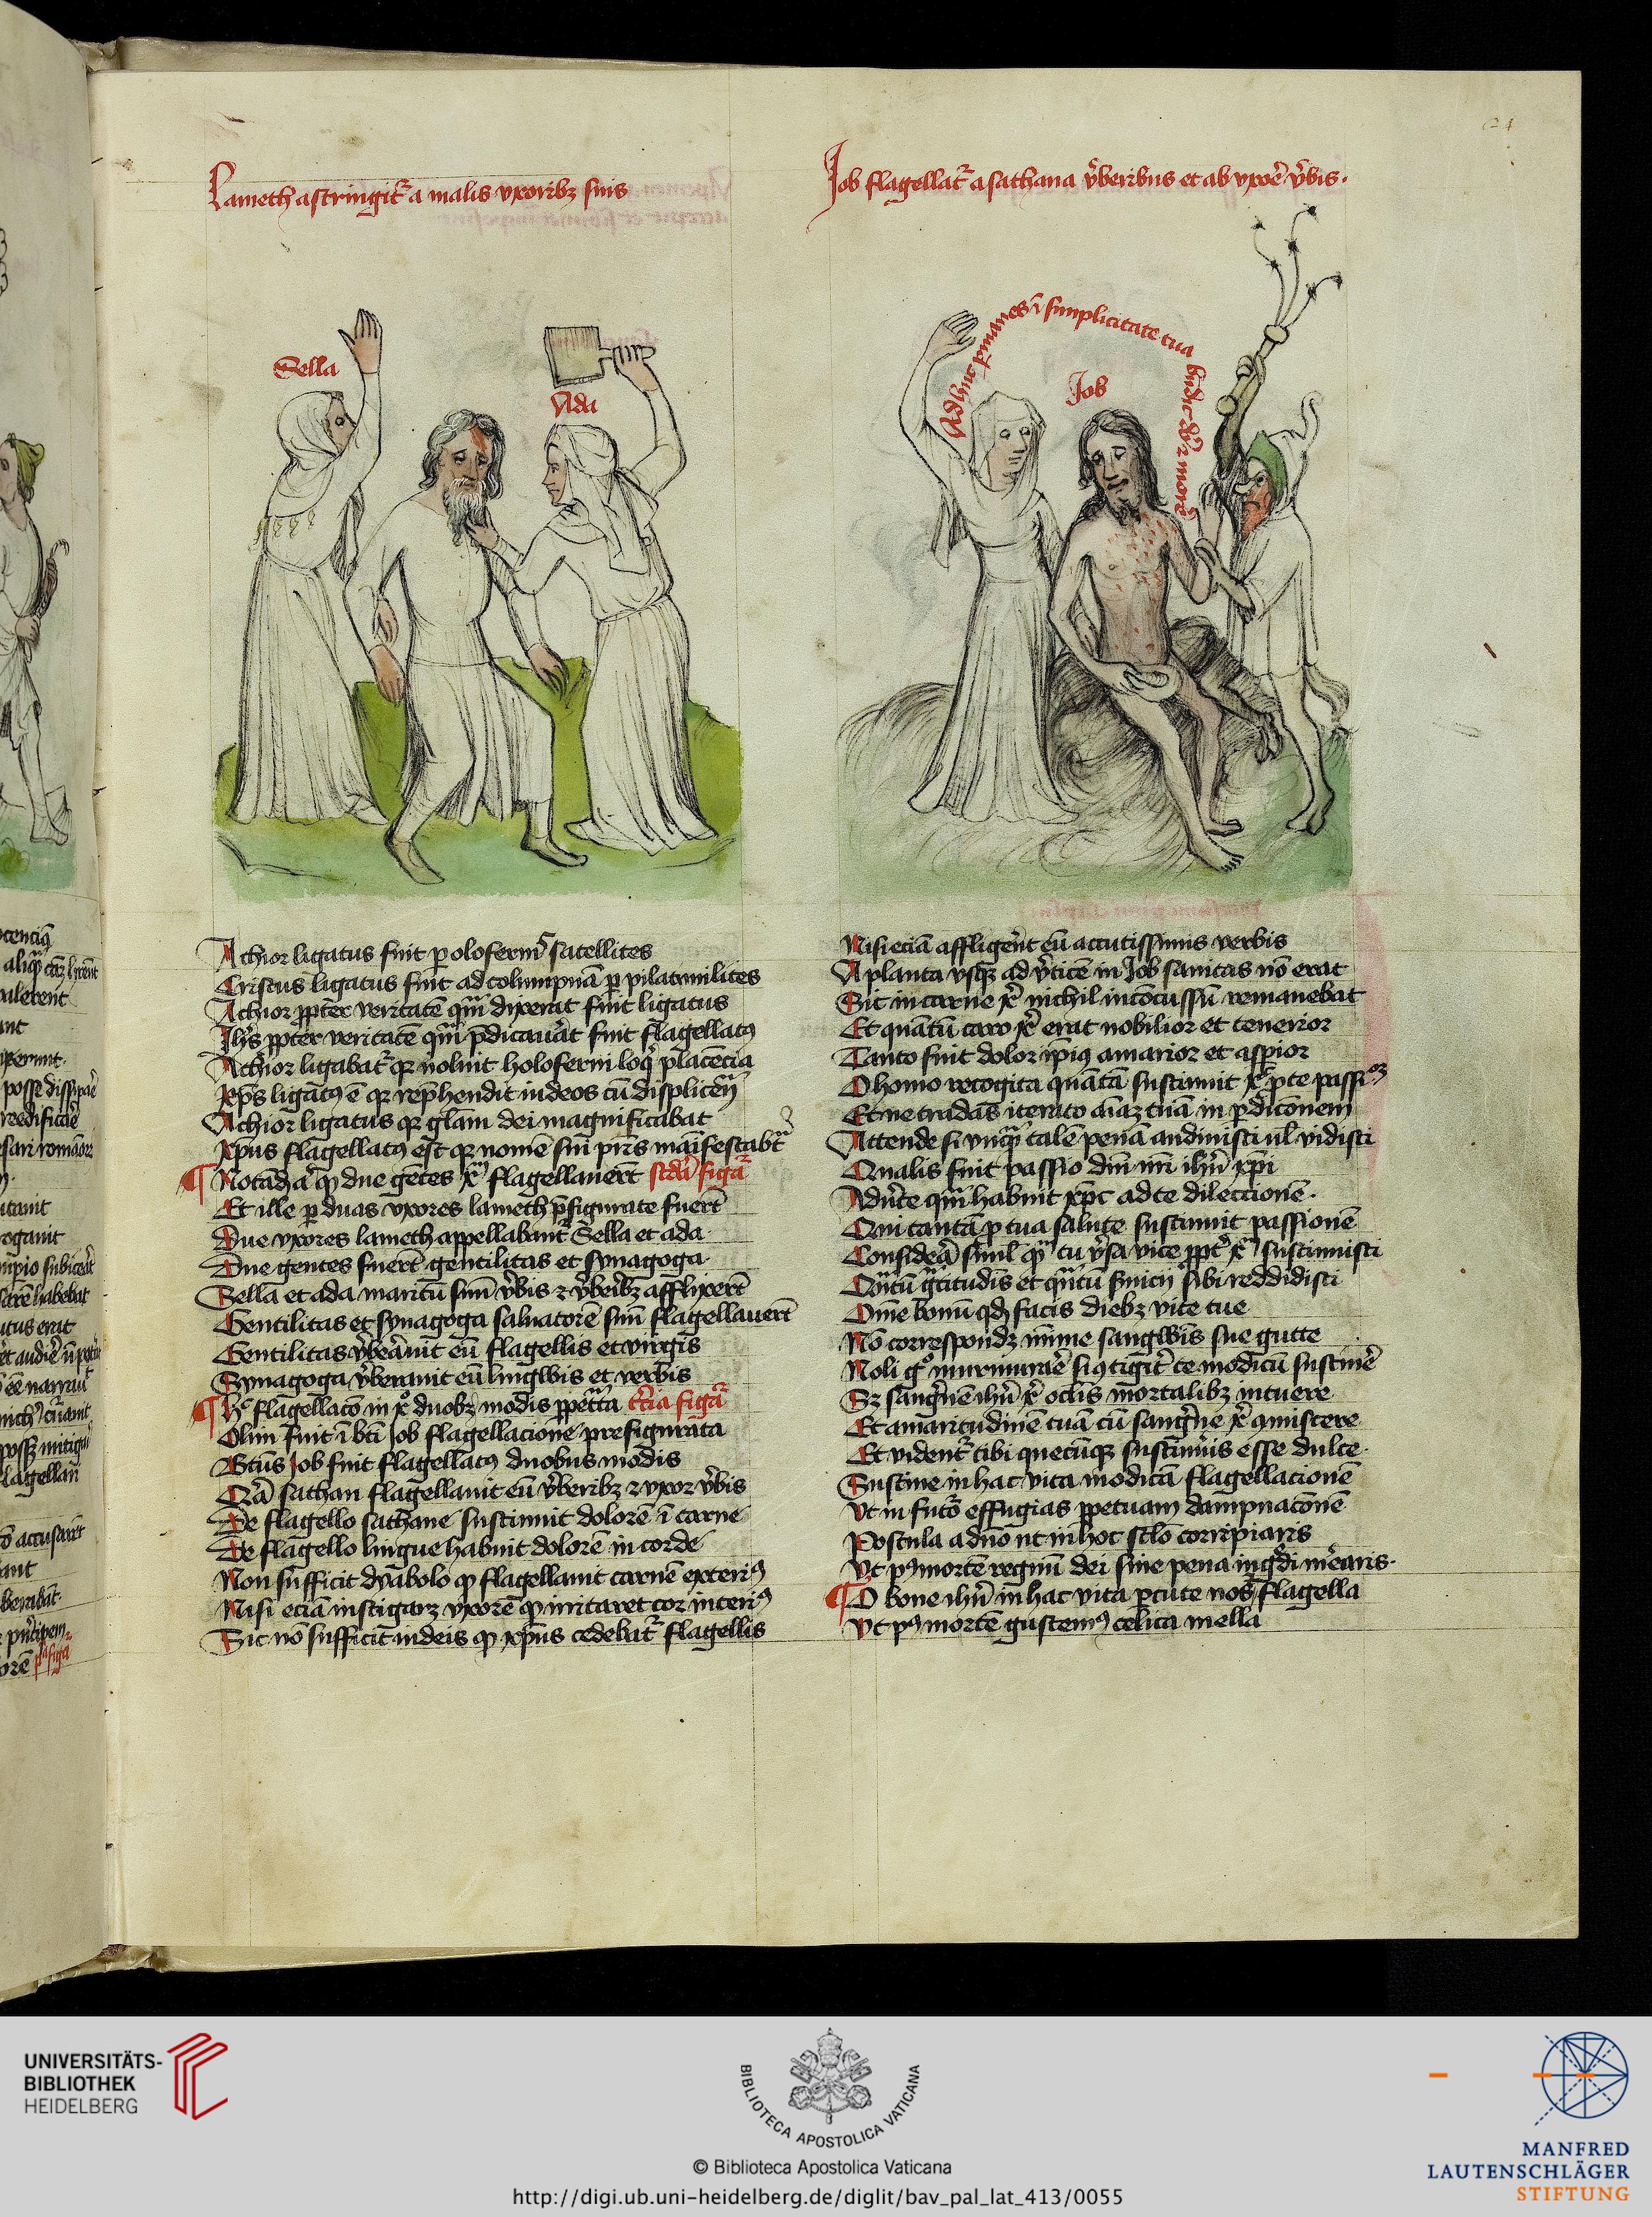 Lameth astringit᷑ a malis vxoribꝫ suis
Sella
Ada
Achior ligatus fuit p olofernꝰ satellites
Cristus ligatus fuit ad columpnā ꝑ pilati milites
Achior ꝓpter veritatē quā dixerat fuit ligatus
Ihs ꝓpter veritatē quā p̄dicauat fuit flagellatꝰ
Achior ligabat᷑ qꝛ noluit holoferni loqͥ placēcia
xp̄s ligatꝰ ē qꝛ rep̄hendit iudeos cū displicen
Achior ligatus qꝛ gl̄am dei magnificabat
xp̄us flagellatꝰ est qꝛ nomē sui pr̄is manifestabat᷑
Notadꝫ qꝫ due gētes xp̄m flagellauer̄t scda figa
Et ille ꝑ duas vxores lameth p̄figurate fuer̄t
Due vxores lameth appellabant᷑ Sella et ada
Due gentes fuer̄t gentilitas et synagoga
Sella et ada maritū suū v̄bis ⁊ v̄beribꝫ afflixer̄t
Gentilitas et synagoga saluatorē suū flagellauer̄t
Gentilitas v̄berauit eū flagellis et virgis
Synagoga v̄berauit eū lingwis et verbis
Hec flagellaco in xo duobꝫ modis ꝑpetrata t̄cia figa
Olim fuit ī bti Job flagellacione prefigurata
Btūs Job fuit flagellatꝰ duobus modis
Qꝛ sathan flagellauit eū v̄beribꝫ ⁊ vxor v̄bis
De flagello sathane sustinuit dolorē ī carne
De flagello lingue habuit dolorē in corde
Non sufficit dyabolo qꝫ flagellauit carnē exteriꝰ
Nisi eciā instigaret vxorē qꝫ irritaret cor interiꝰ
Sic nō sufficit iudeis qꝫ xp̄us cedebat᷑ flagellis
Job flagellat᷑ a sathana v̄beribus et ab vxore v̄bis.
Adhuc ꝑmanes ī simplicitate tua bn̄dic deo ⁊ more
Job
Nisi eciā affliger̄nt eū accutissimis verbis
A planta vsqꝫ ad v̄ticē in Job sanitas nō erat
Sic in carne xi nichil incōcussū remanebat
Et quātū caro xi erat nobilior et tenerior
Tanto fuit dolor ipiꝰ amarior et asp̄ior
O homo recogita quātā sustinuit xps ꝑ te passioꝫ
Et ne tradas iterato aīaꝫ tuā in ꝑdicōnem
Attende si vnqꝫ talē penā audiuisti ul̄ vidisti
Qualis fuit passio dn̄i nr̄i ihū xp̄i
Adu̇te quā habuit xp̄c ad te dileccionē.
Qui tantā ꝓ tua salute sustinuit passionē
Considera simul qd tu v̄sa vice ꝓpt᷑ xm sustinuisti
Qn̄tū gratitudis et qn̄tū seruicij sibi reddidisti
Om̄e bonū qd facis diebꝫ vite tue
Nō correspondꝫ mīme sangwis sue gutte
Noli go murmurare si ꝯtigit᷑ te modicū sustinere
Sꝫ sangwinē ihū xi oclis mortalibꝫ intuere
Et amaritudinē tuā cū sangwine xi ꝯmiscere
Et vident᷑ tibi quecūqꝫ sustinueris esse dulce.
Sustine in hac vita modicā flagellacionē
Vt in futo effugias ꝑpetuam dampnacōnē
Postula a dn̄o ut in hoc sclo corripiaris
Vt pꝰ mortē regnū dei sine pena ingredi mearis.
O bone ihū in hac vita ꝑcute nos flagella
Vt pꝰ mortē gustemꝰ celica mella
UNIVERSITÄTS-
BIBLIOTHEK
HEIDELBERG
BIBLIOTECA APOSTOLICA VATICANA
© Biblioteca Apostolica Vaticana
http://digi.ub.uni-heidelberg.de/diglit/bav_pal_lat_413/0055
MANFRED
LAUTENSCHLÄGER
STIFTUNG